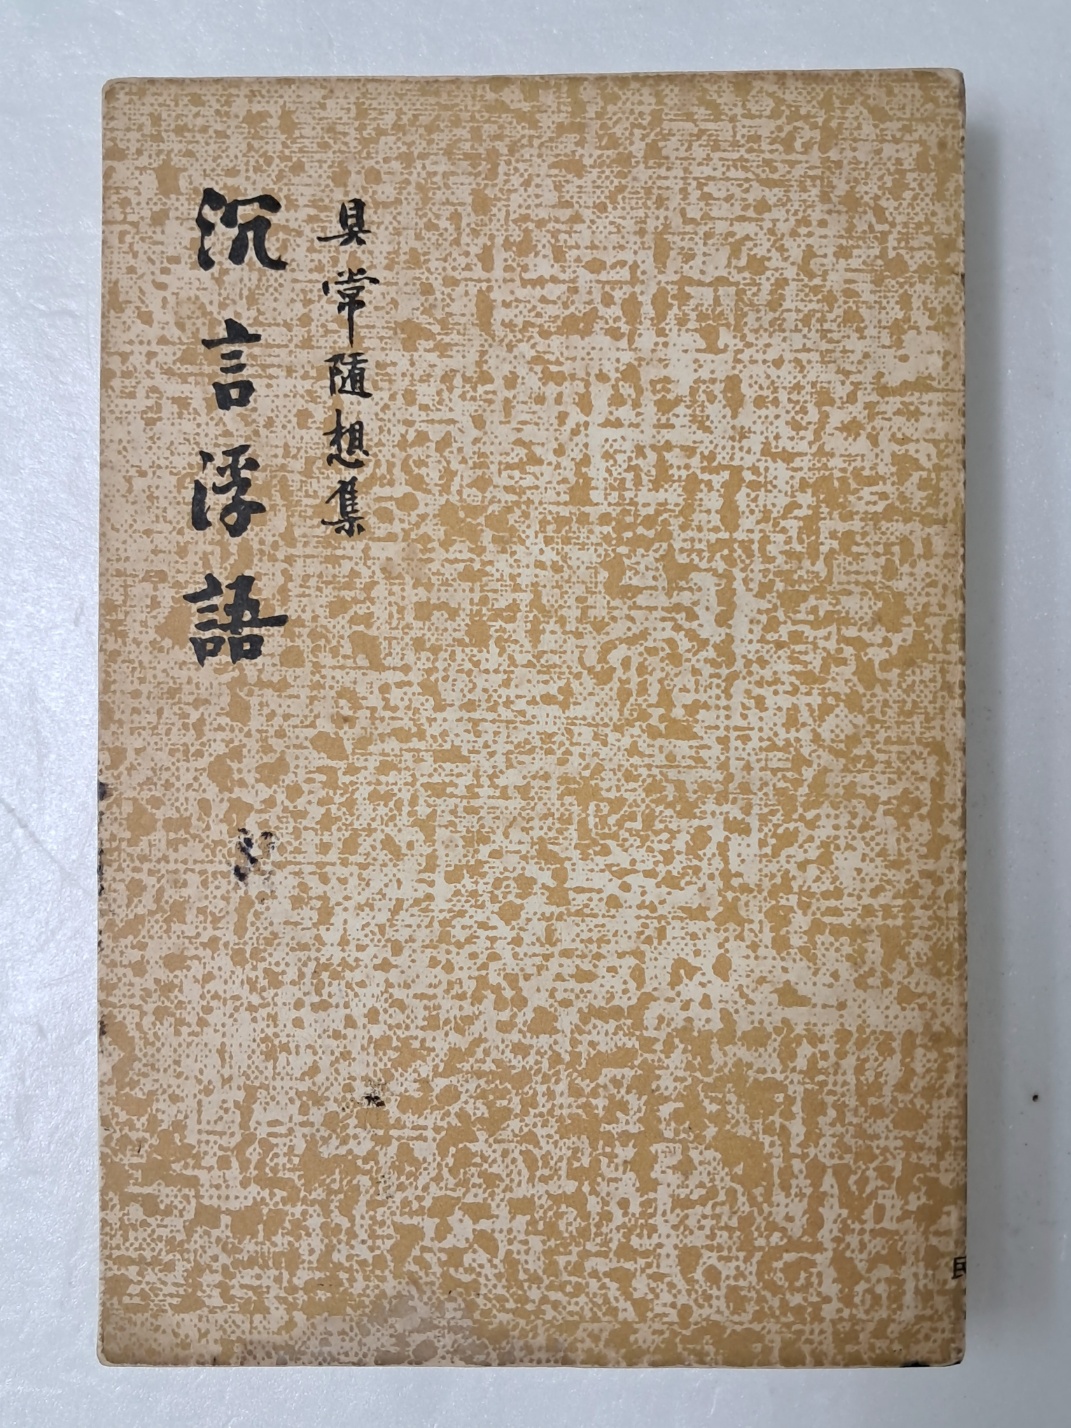 具常隨想集
沉言浮語
民